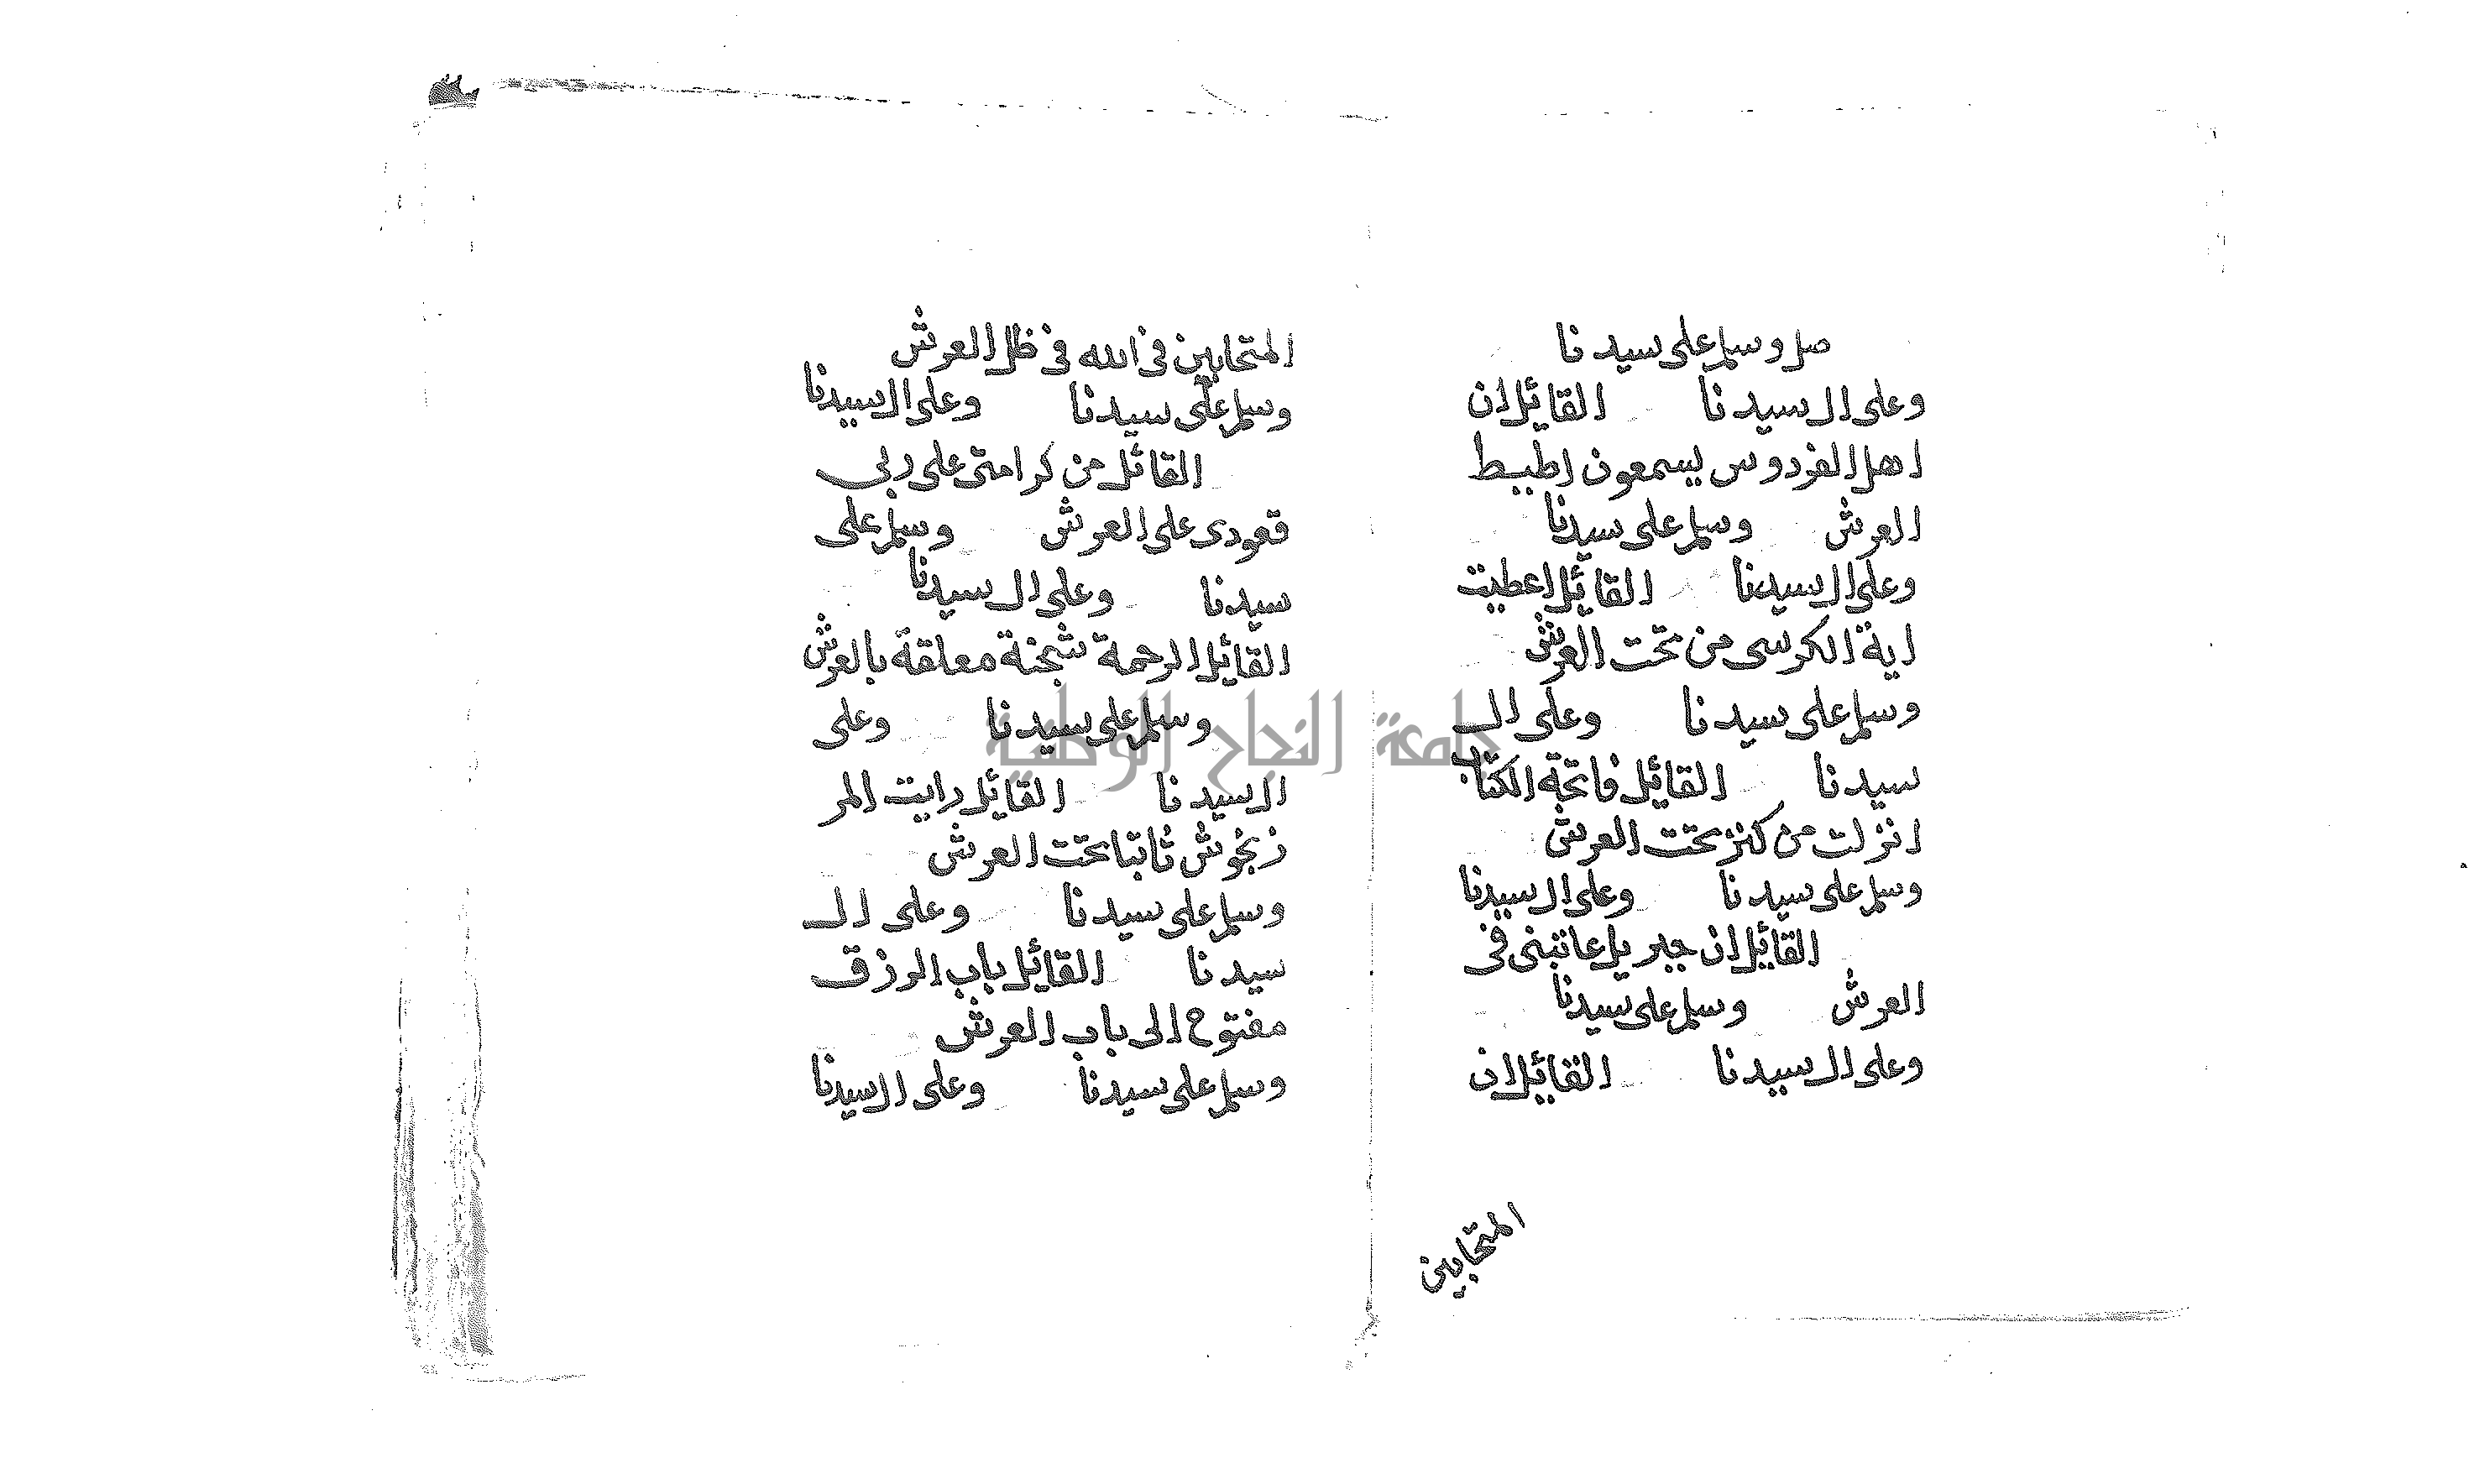 صل وسلم على سيدنا
وعلى ال سيدنا القائل ان
اهل الفردوس يسمعون اطيط
العرش وسلم على سيدنا
وعلى ال سيدنا القائل اعطيت
اية الكرسى من تحت العرش
وسلم على سيدنا وعلى ال
سيدنا القائل فاتحة الكتاب
انزلت من كنز تحت العرش
وسلم على سيدنا وعلى ال سيدنا
القائل ان جبريل عاتبنى فى
العرش وسلم على سيدنا
وعلى ال سيدنا القائل ان
المتحابين
المتحابين فى الله فى ظل العرش
وسلم على سيدنا وعلى ال سيدنا
القائل من كرامتى على ربى
قعودى على العرش وسلم على
سيدنا وعلى ال سيدنا
القائل الرحمة شجنة معلقة بالعرش
وسلم على سيدنا وعلى
ال سيدنا القائل رايت المر
زنجوش نابتا تحت العرش
وسلم على سيدنا وعلى ال
سيدنا القائل باب الرزق
مفتوح الى باب العرش
وسلم على سيدنا وعلى ال سيدنا
جامعة النجاح الوطنية